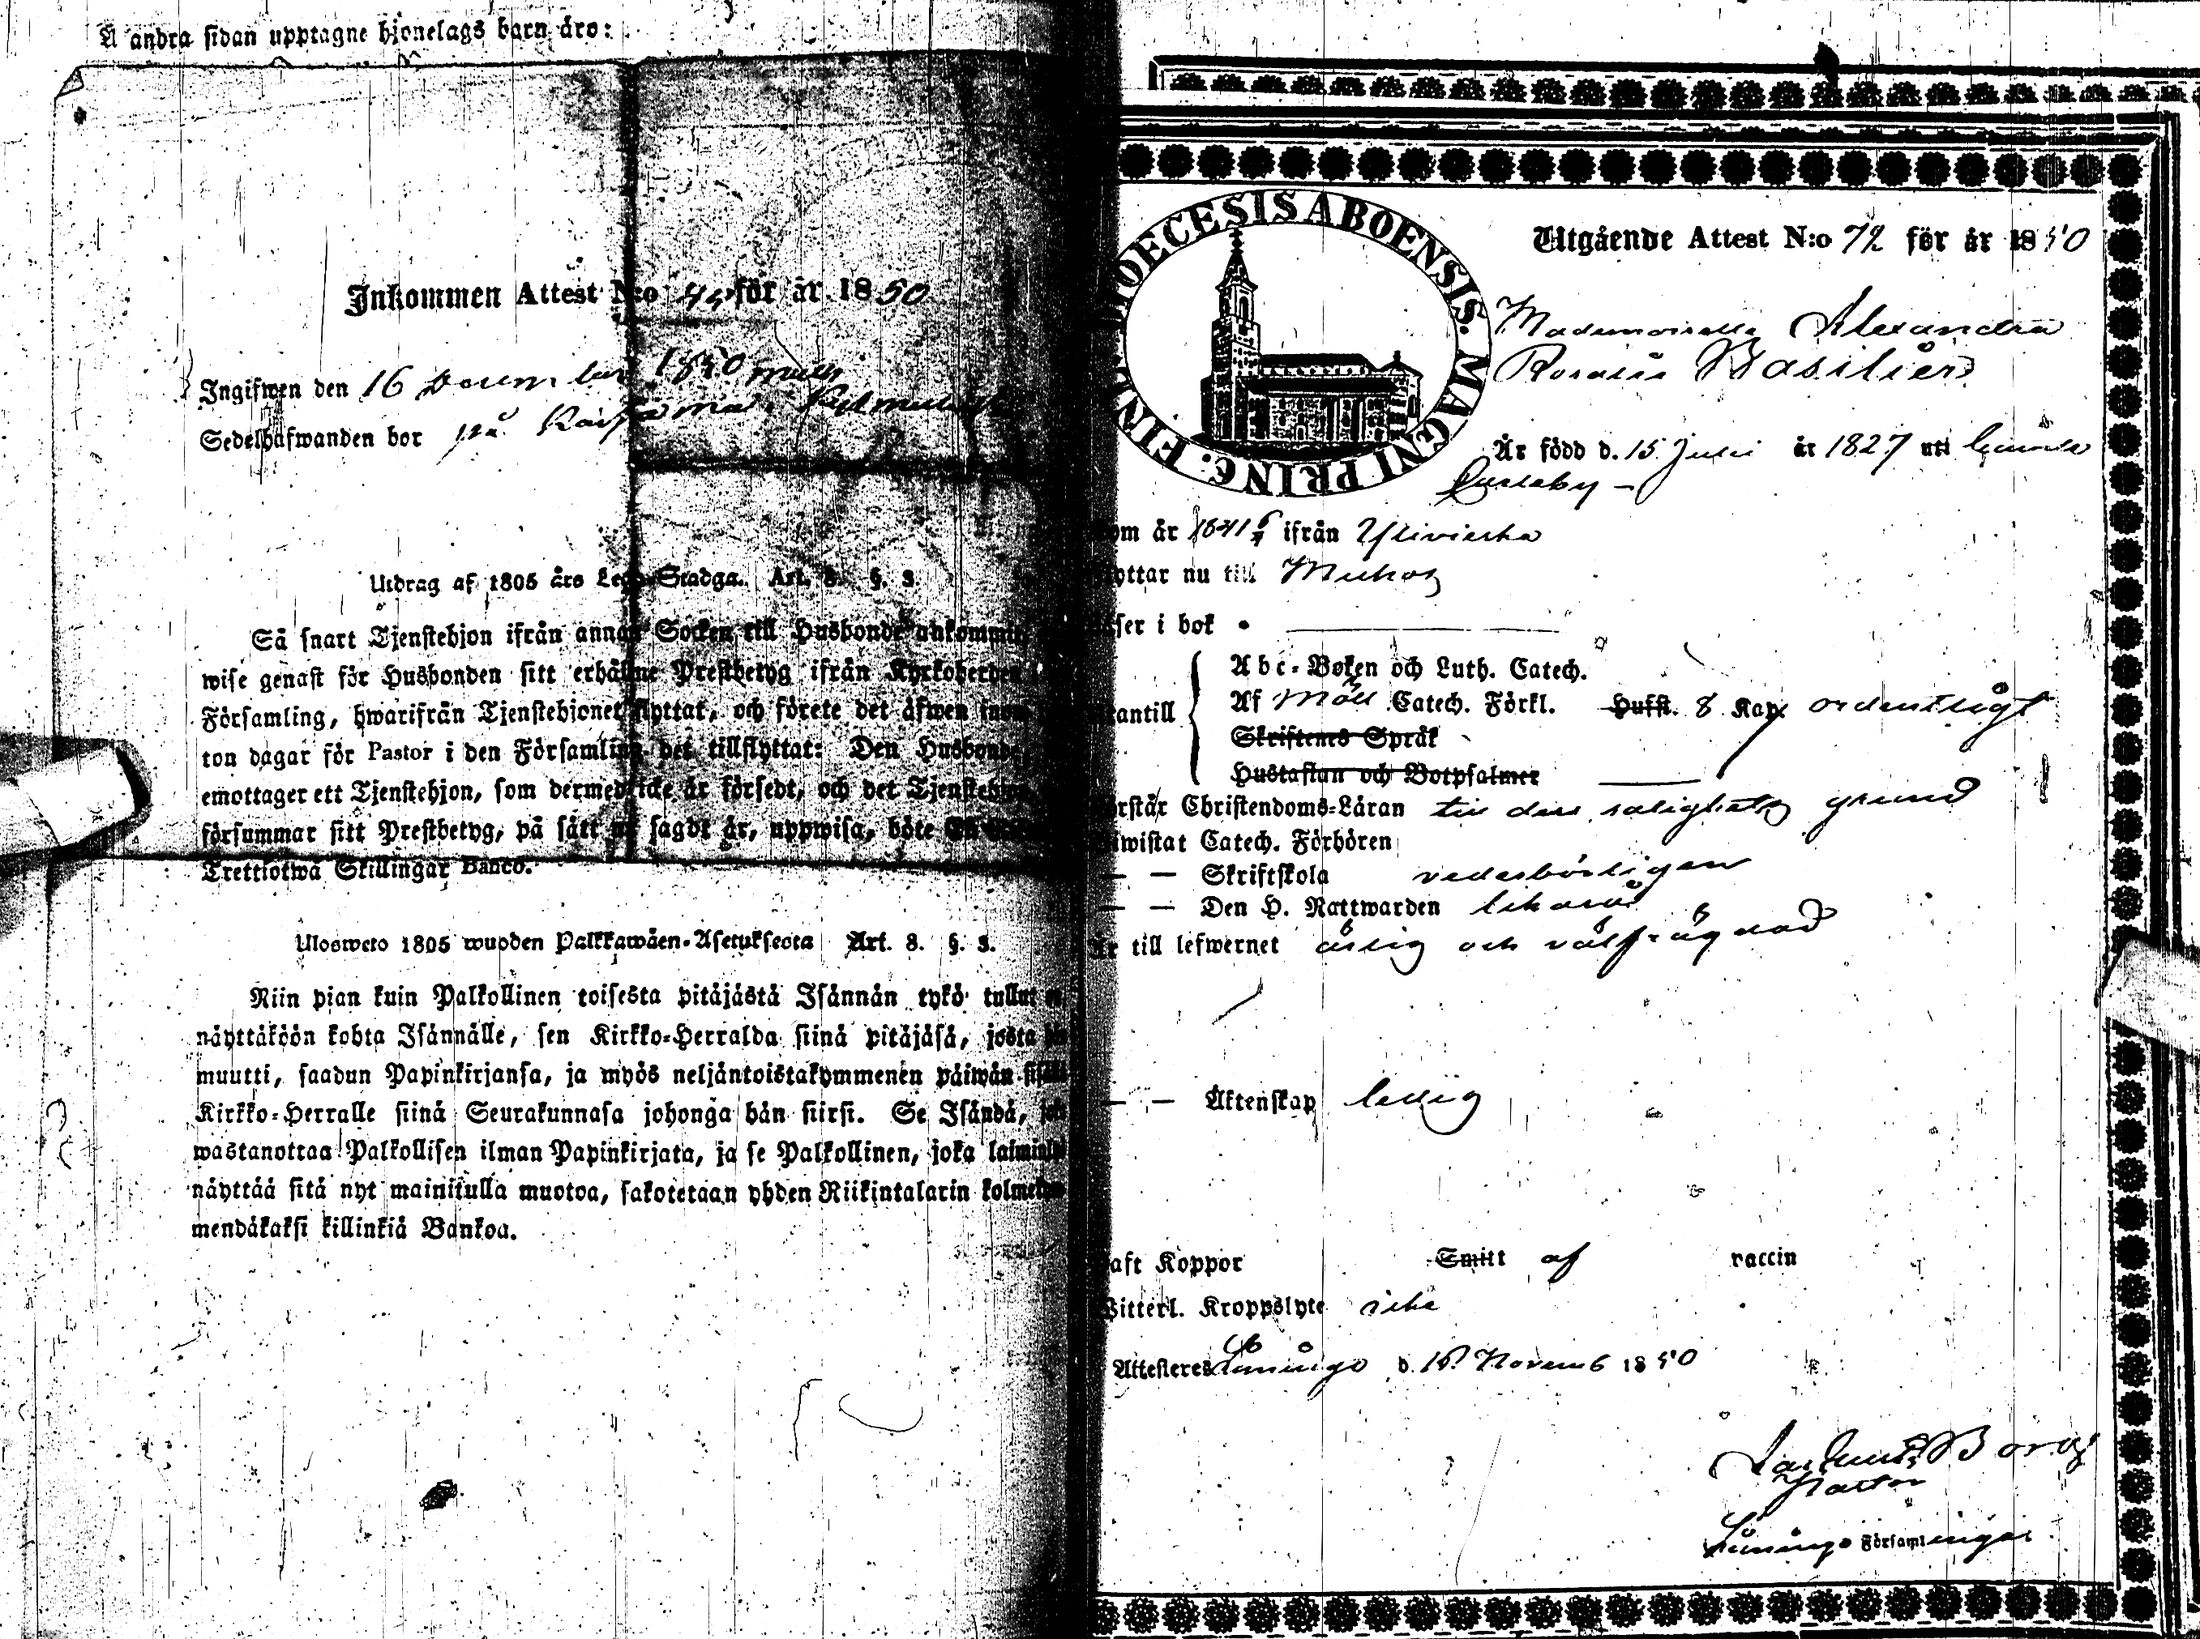 Å andra sidan upptagne hjonelags barn äro:
Inkommen Attest N:o för år 1850
Ingifwen den 16 December 1850
Sedelhafwanden bor på
Utdrag af 1805 års Lego-Stadga. Art. 8. §. 3.
Så snart Tjenstehjon ifrån annan Socken till Husbonde ankommit
wise genast för Husbonden sitt erhållne Prestbetyg ifrån Kyrkoherden
Församling, hwarifrån Tjenstehjonet flyttat, och förete det äfwen inom
ton dagar för Pastor i den Församling det tillflyttat: Den Husbonde
emottager ett Tjenstehjon, som dermed icke är försedt, och det Tjenstehjon
försummar sitt Prestbetyg, på sätt nu sagdt är, uppwisa, böte En
Trettiotwå Skillingar Banco.
Ulosweto 1805 wuoden Palkkawäen-Asetuksesta Art. 8. §. 3.
Niin pian kuin Palkollinen toisesta pitäjästä Isännän tykö tullut
näyttäköön kohta Isännälle, sen Kirkko-Herralda siinä pitäjäsä, josta
muutti, saadun Papinkirjansa, ja myös neljäntoistakymmenen päiwän
Kirkko-Herralle siinä Seurakunnasa johonga hän siirsi. Se Isändä,
wastanottaa Palkollisen ilman Papinkirjata, ja se Palkollinen, joka
näyttää sitä nyt mainitulla muotoa, sakotetaan yhden Riikintalarin
mendäkaksi killinkiä Bankoa.
DIOECESIS ABOENSIS. MAGNI PRINC. FINL.
Utgående Attest N:o 72 för år 1850
Mademoiselle Alexandra
Rosalie Basilier
Är född d. 15 Juli år 1827 uti Gamla
Carleby
om år 1841 ifrån Ylivieska
yttar nu till Muhos
äser i bok
Abc-Boken och Luth. Catech.
Af Catech. Förkl. Hufst. 8 Kap. ordentligt
utantill
Skriftenes Språk
Hustaflan och Botpsalmer
örstår Christendoms-Läran till dess salighets grund
iwistat Catech. Förhören
— — Skriftskola vederbörligen
— — Den H. Nattwarden likaså
Är till lefwernet ärlig och välfrägdad
— — Äktenskap ledig
aft Koppor Smitt af vaccin
Witterl. Kroppslyte icke
Attesteres Limingo d. Novemb 1850
Borg
Pastor
Limingo Församlingar